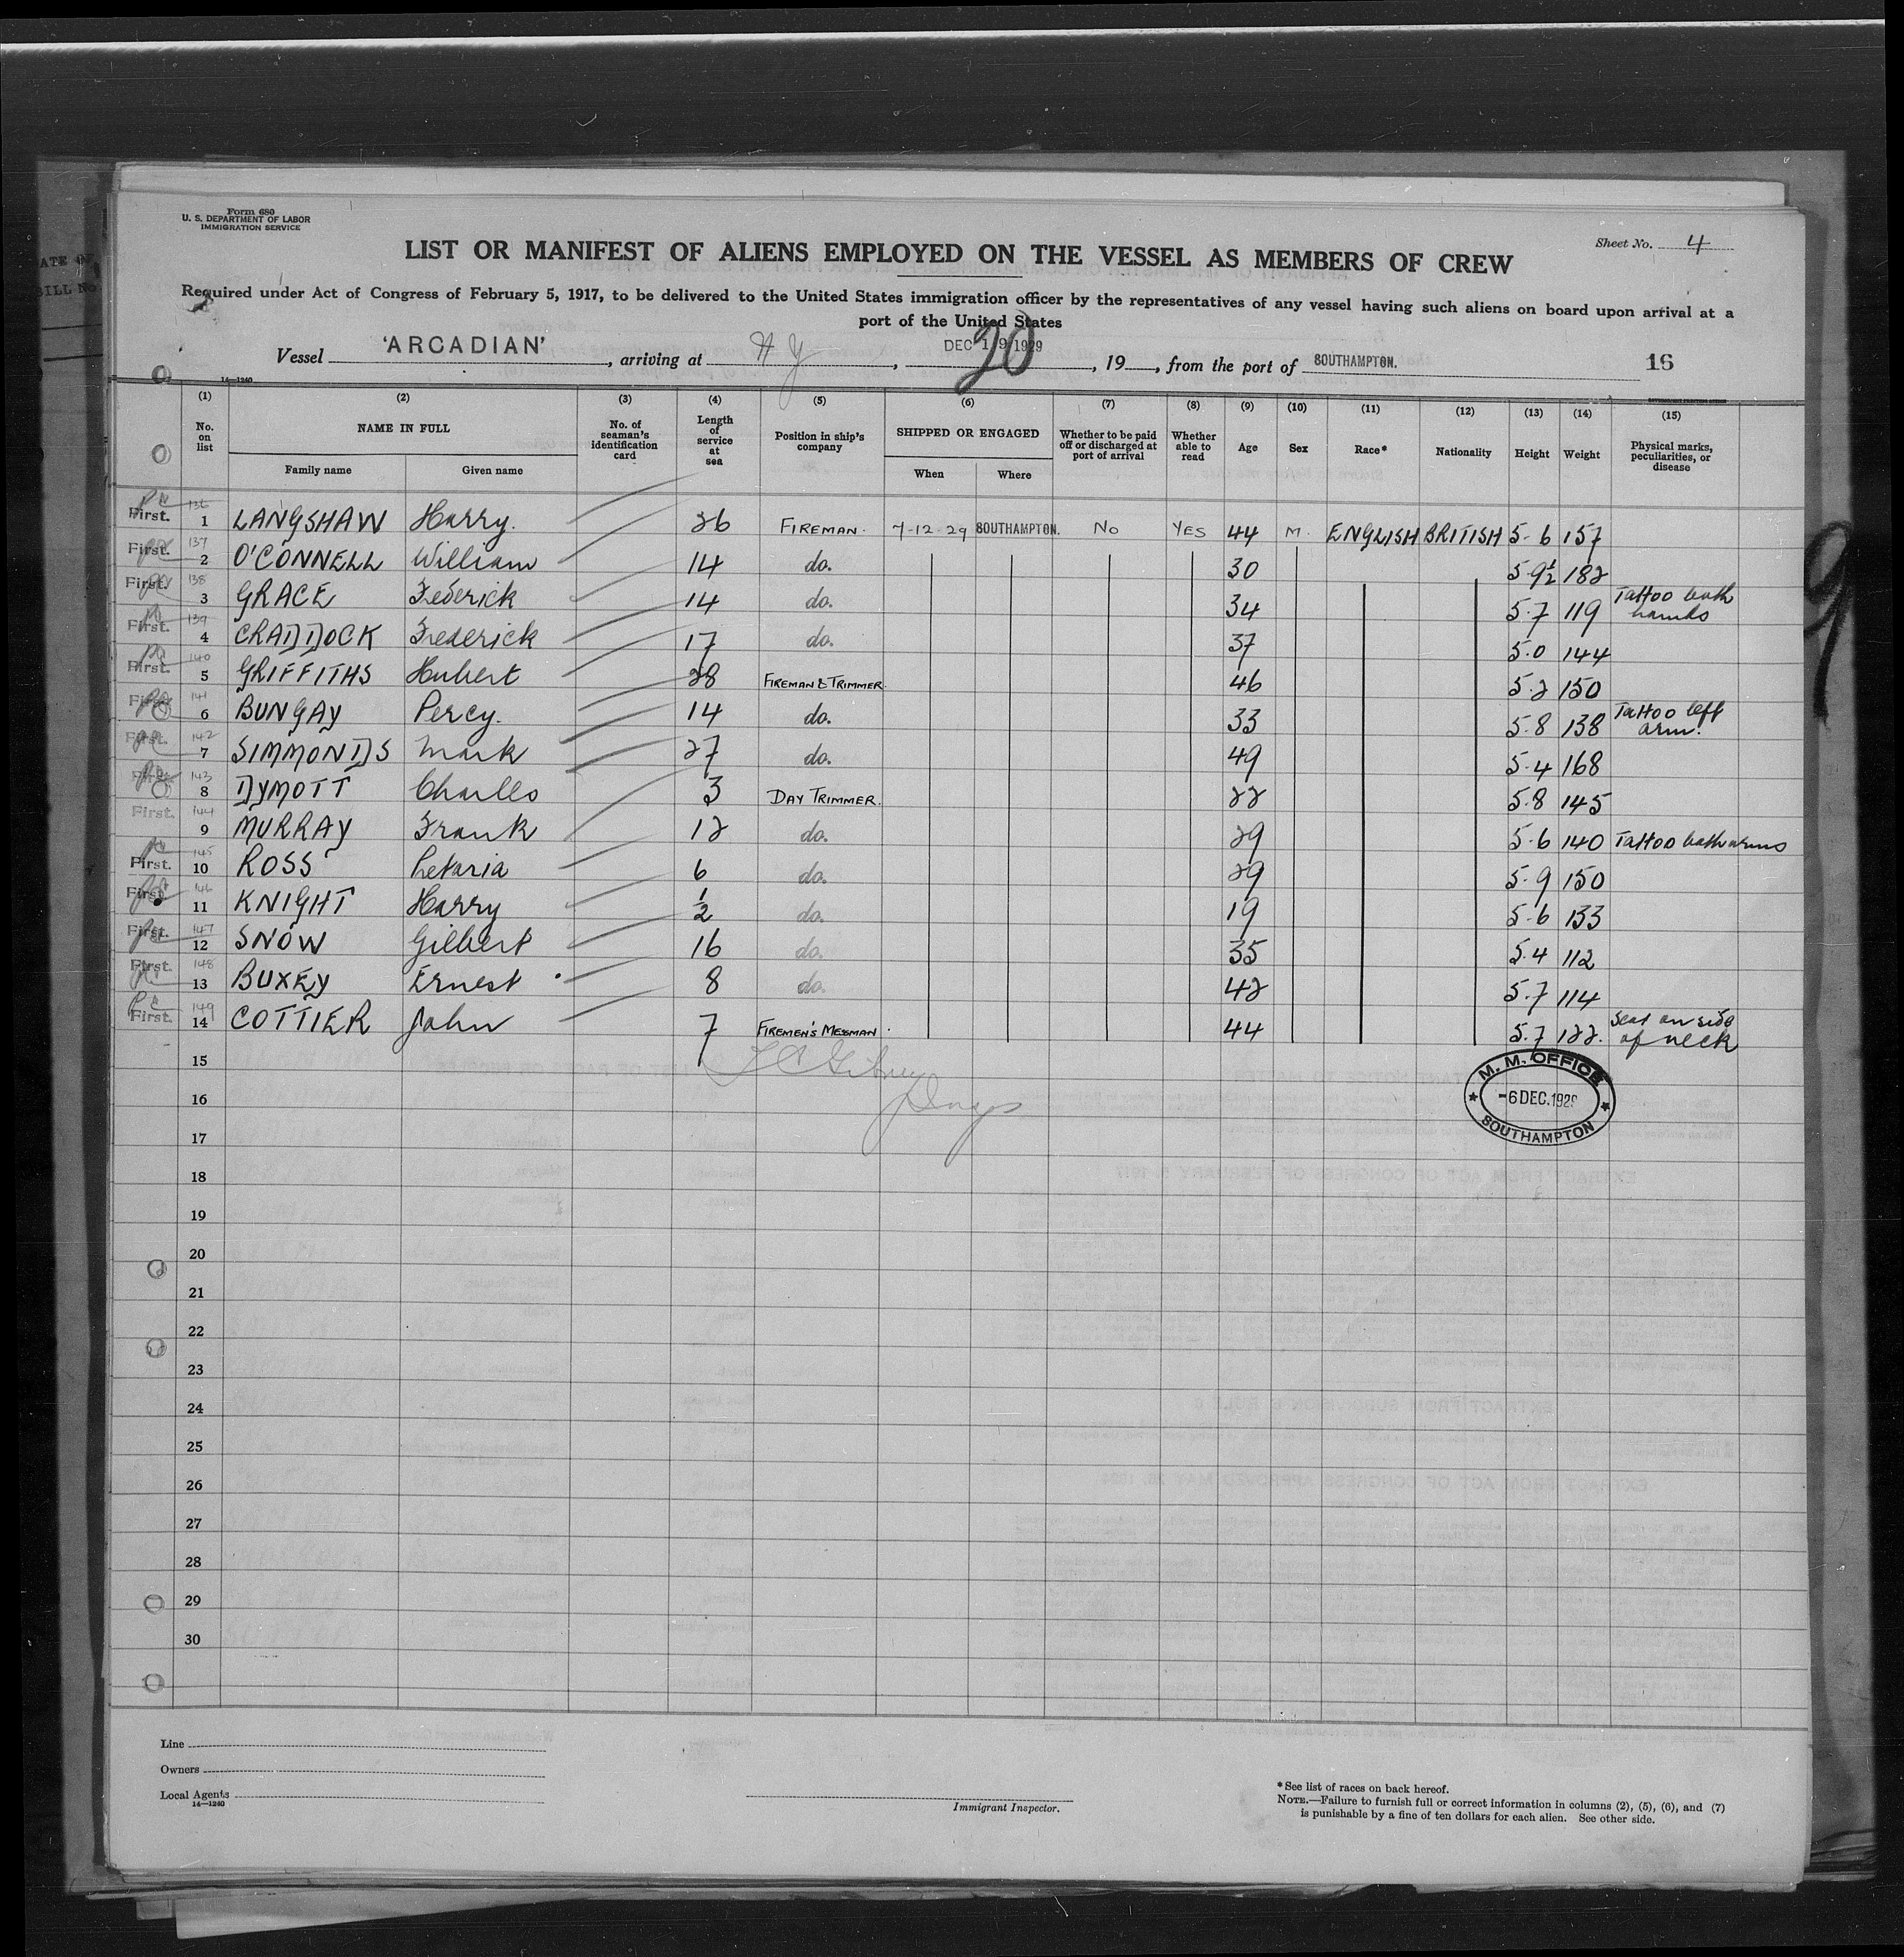 ATE OF
BILL No
Form 680
U. S. DEPARTMENT OF LABOR
IMMIGRATION SERVICE
Sheet No. 4
LIST OR MANIFEST OF ALIENS EMPLOYED ON THE VESSEL AS MEMBERS OF CREW
Required under Act of Congress of February 5, 1917, to be delivered to the United States immigration officer by the representatives of any vessel having such aliens on board upon arrival at a
port of the United States
Vessel 'ARCADIAN', arriving at N Y, DEC 19 1929 20, 19, from the port of SOUTHAMPTON. 16
14—1240
(1) (2) (3) (4) (5) (6) (7) (8) (9) (10) (11) (12) (13) (14) (15)
No. on list NAME IN FULL Family name Given name No. of seaman's identification card Length of service at sea Position in ship's company SHIPPED OR ENGAGED When Where Whether to be paid off or discharged at port of arrival Whether able to read Age Sex Race* Nationality Height Weight Physical marks, peculiarities, or disease
First. 136 1 LANGSHAW Harry. 26 FIREMAN. 7-12-29 SOUTHAMPTON. No YES 44 M. ENGLISH BRITISH 5-6 157
First. 137 2 O'CONNELL William 14 do. 30 5-9½ 182
First. 138 3 GRACE Frederick 14 do. 34 5.7 119 Tattoo both hands
First. 139 4 CRADDOCK Frederick 17 do. 37 5.0 144
First. 140 5 GRIFFITHS Hubert 28 FIREMAN & TRIMMER. 46 5.2 150
First. 141 6 BUNGAY Percy. 14 do. 33 5.8 138 Tattoo left arm.
First. 142 7 SIMMONDS Mark 27 do. 49 5.4 168
First. 143 8 DYMOTT Charles 3 DAY TRIMMER. 22 5.8 145
First. 144 9 MURRAY Frank 12 do. 29 5.6 140 Tattoo both arms
First. 145 10 ROSS 6 do. 29 5.9 150
First. 146 11 KNIGHT Harry ½ do. 19 5.6 133
First. 147 12 SNOW Gilbert 16 do. 35 5.4 112
First. 148 13 BUXEY Ernest 8 do. 42 5.7 114
First. 149 14 COTTIER John 7 FIREMEN'S MESSMAN. 44 5.7 122. Scar on side of neck
15
16
17
18
19
20
21
22
23
24
25
26
27
28
29
30
M. M. OFFICE
-6 DEC. 1929
SOUTHAMPTON
9
Line
Owners
Local Agents
14—1240
Immigrant Inspector.
*See list of races on back hereof.
NOTE.—Failure to furnish full or correct information in columns (2), (5), (6), and (7)
is punishable by a fine of ten dollars for each alien. See other side.